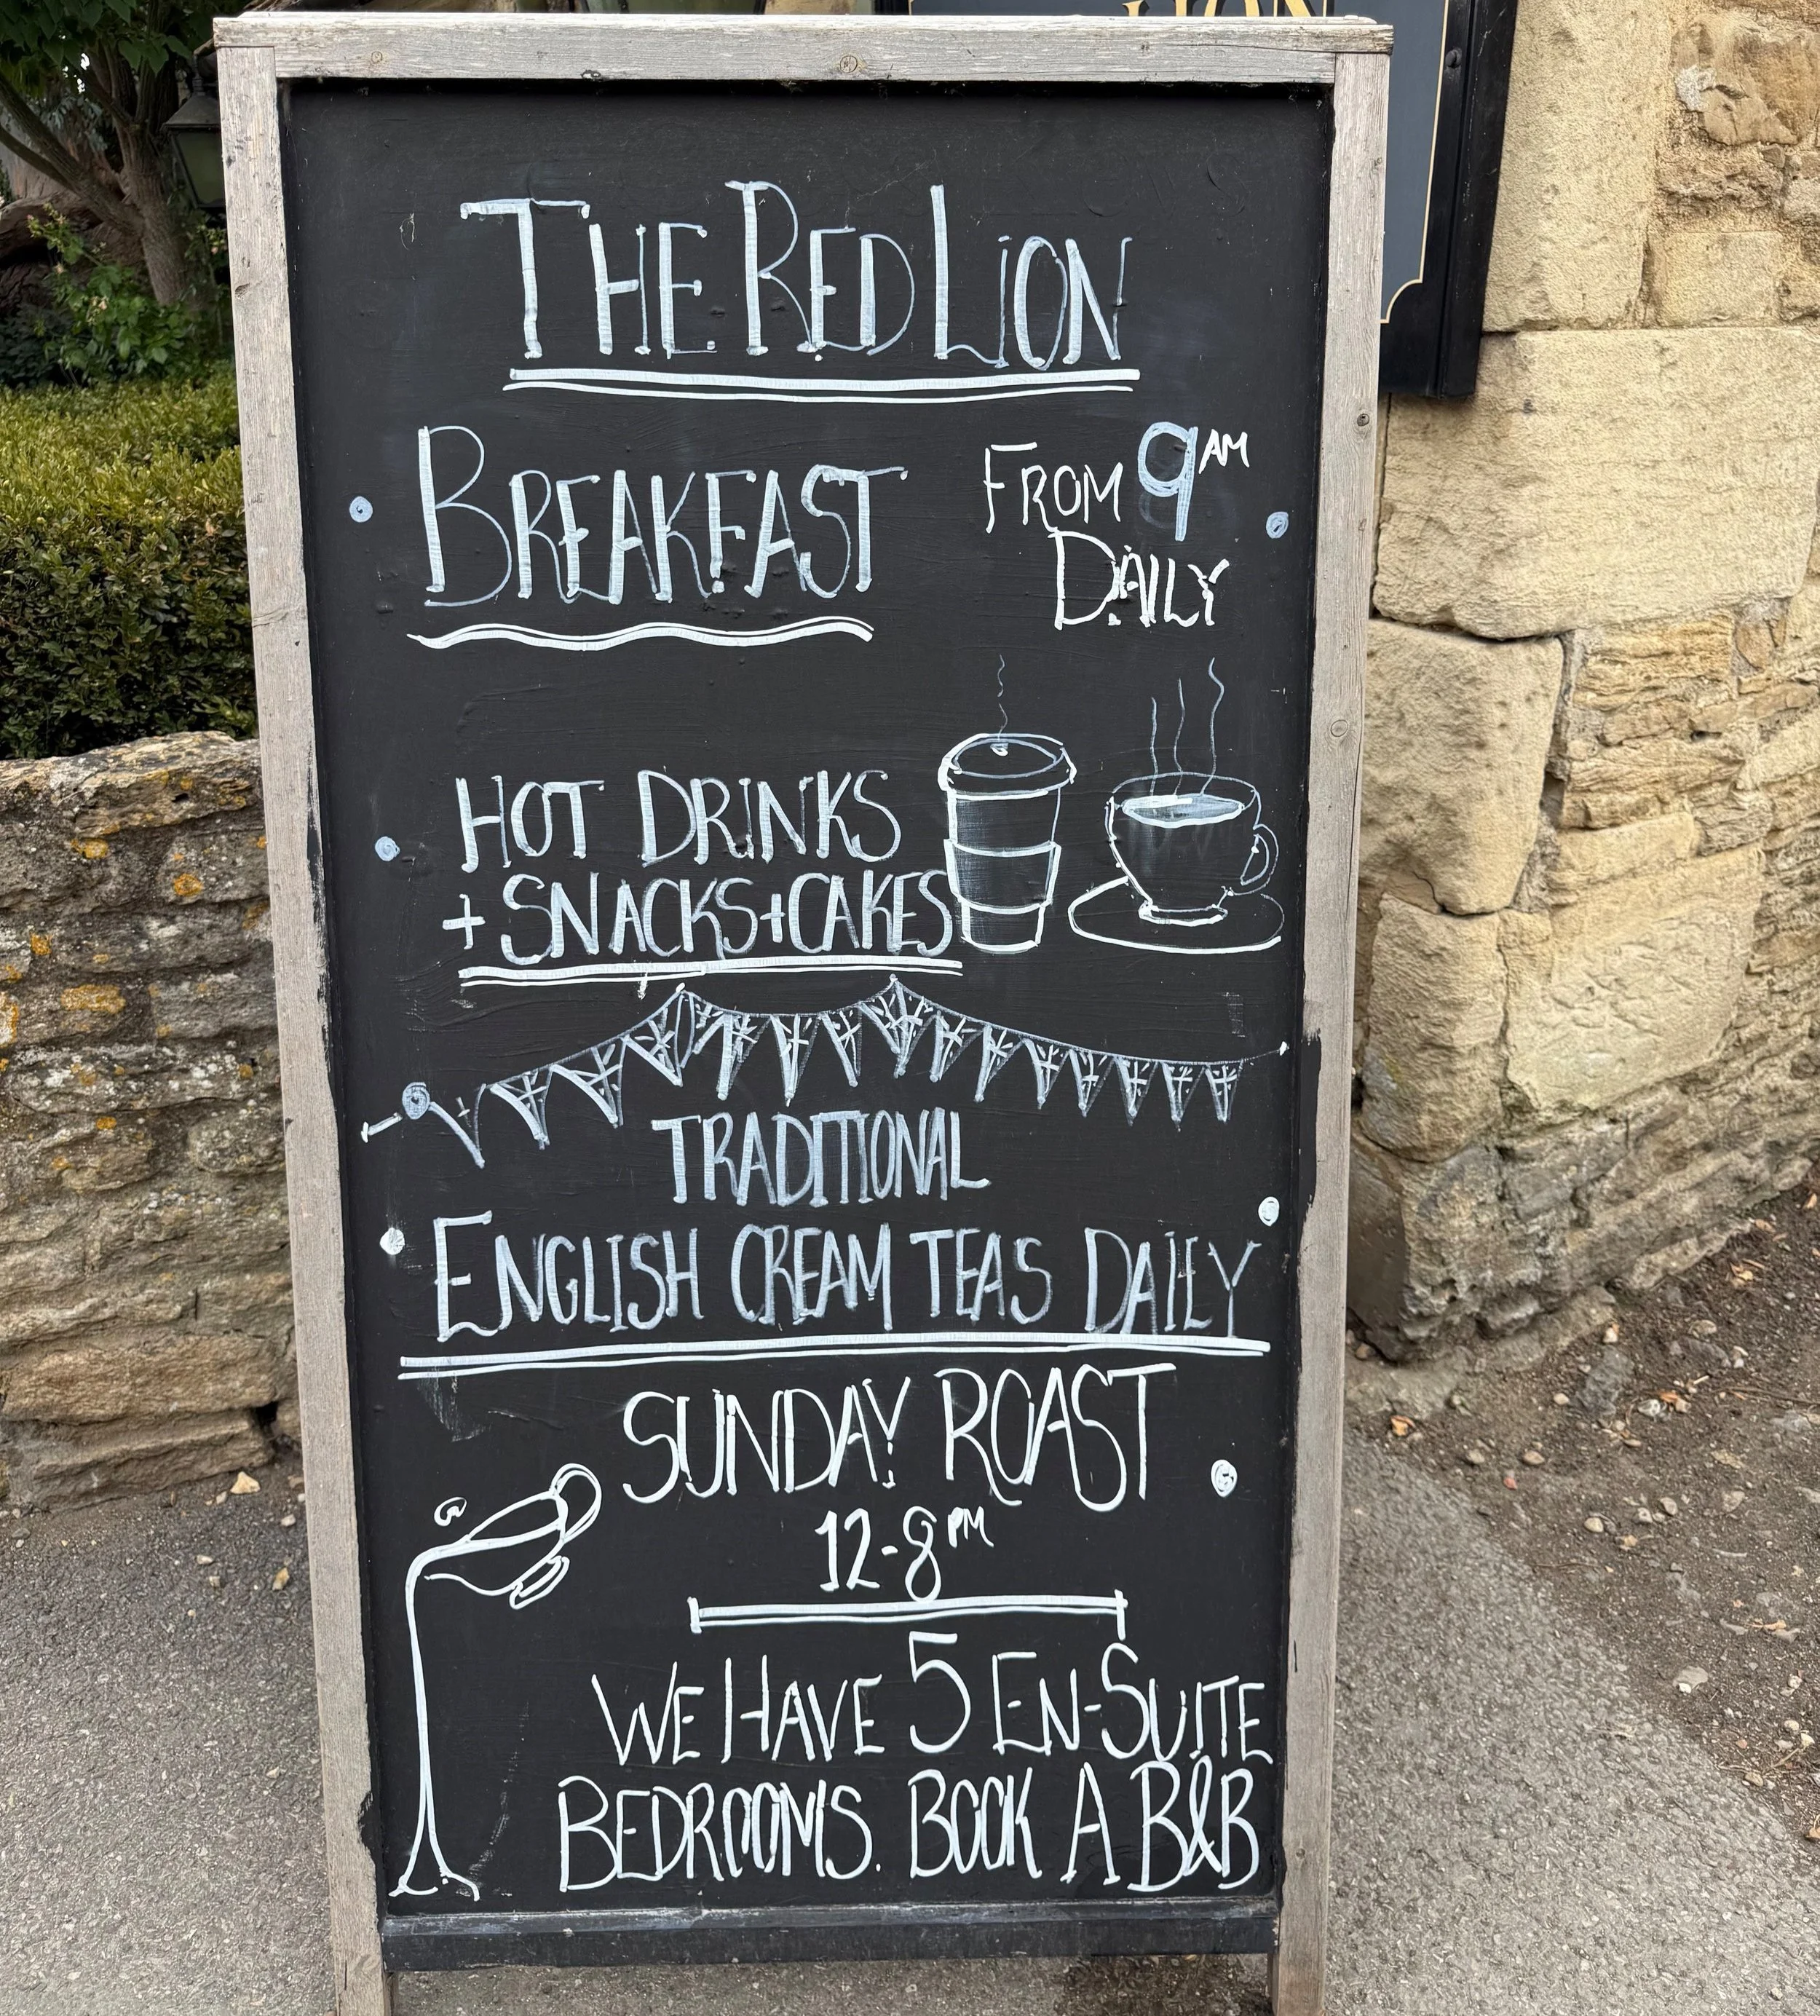 LION
THE RED LION
BREAKFAST
FROM 9AM
DAILY
HOT DRINKS
+ SNACKS + CAKES
TRADITIONAL
ENGLISH CREAM TEAS DAILY
SUNDAY ROAST
12-8PM
WE HAVE 5 EN-SUITE
BEDROOMS. BOOK A B&B